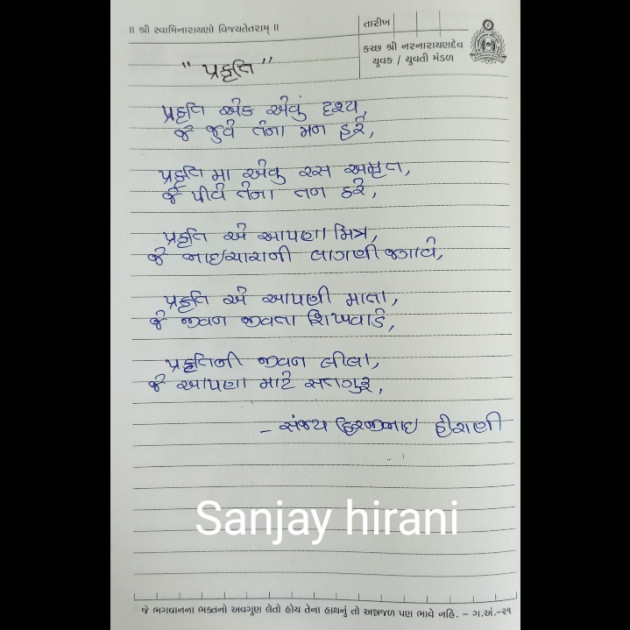 ॥ શ્રી સ્વામિનારાયણો વિજયતેતરામ્ ॥
તારીખ
કચ્છ શ્રી નરનારાયણદેવ
યુવક / યુવતી મંડળ
"પ્રકૃતિ"
પ્રકૃતિ એક એવું દૃશ્ય,
જે જુવે તેના મન હરે,
પ્રકૃતિ મા એવુ રસ અમૃત,
જે પીવે તેના તન ઠરે,
પ્રકૃતિ એ આપણા મિત્ર,
જે ભાઈચારાની લાગણી જગાવે,
પ્રકૃતિ એ આપણી માતા,
જે જીવન જીવતા શિખવાડે,
પ્રકૃતિની જીવન લીલા,
જે આપણા માટે સતગુરુ,
- સંજય હિરજીભાઈ હીરાણી
Sanjay hirani
જે ભગવાનના ભક્તનો અવગુણ લેતો હોય તેના હાથનું તો અન્નજળ પણ ભાવે નહિ. - ગ.અં.-૨૧